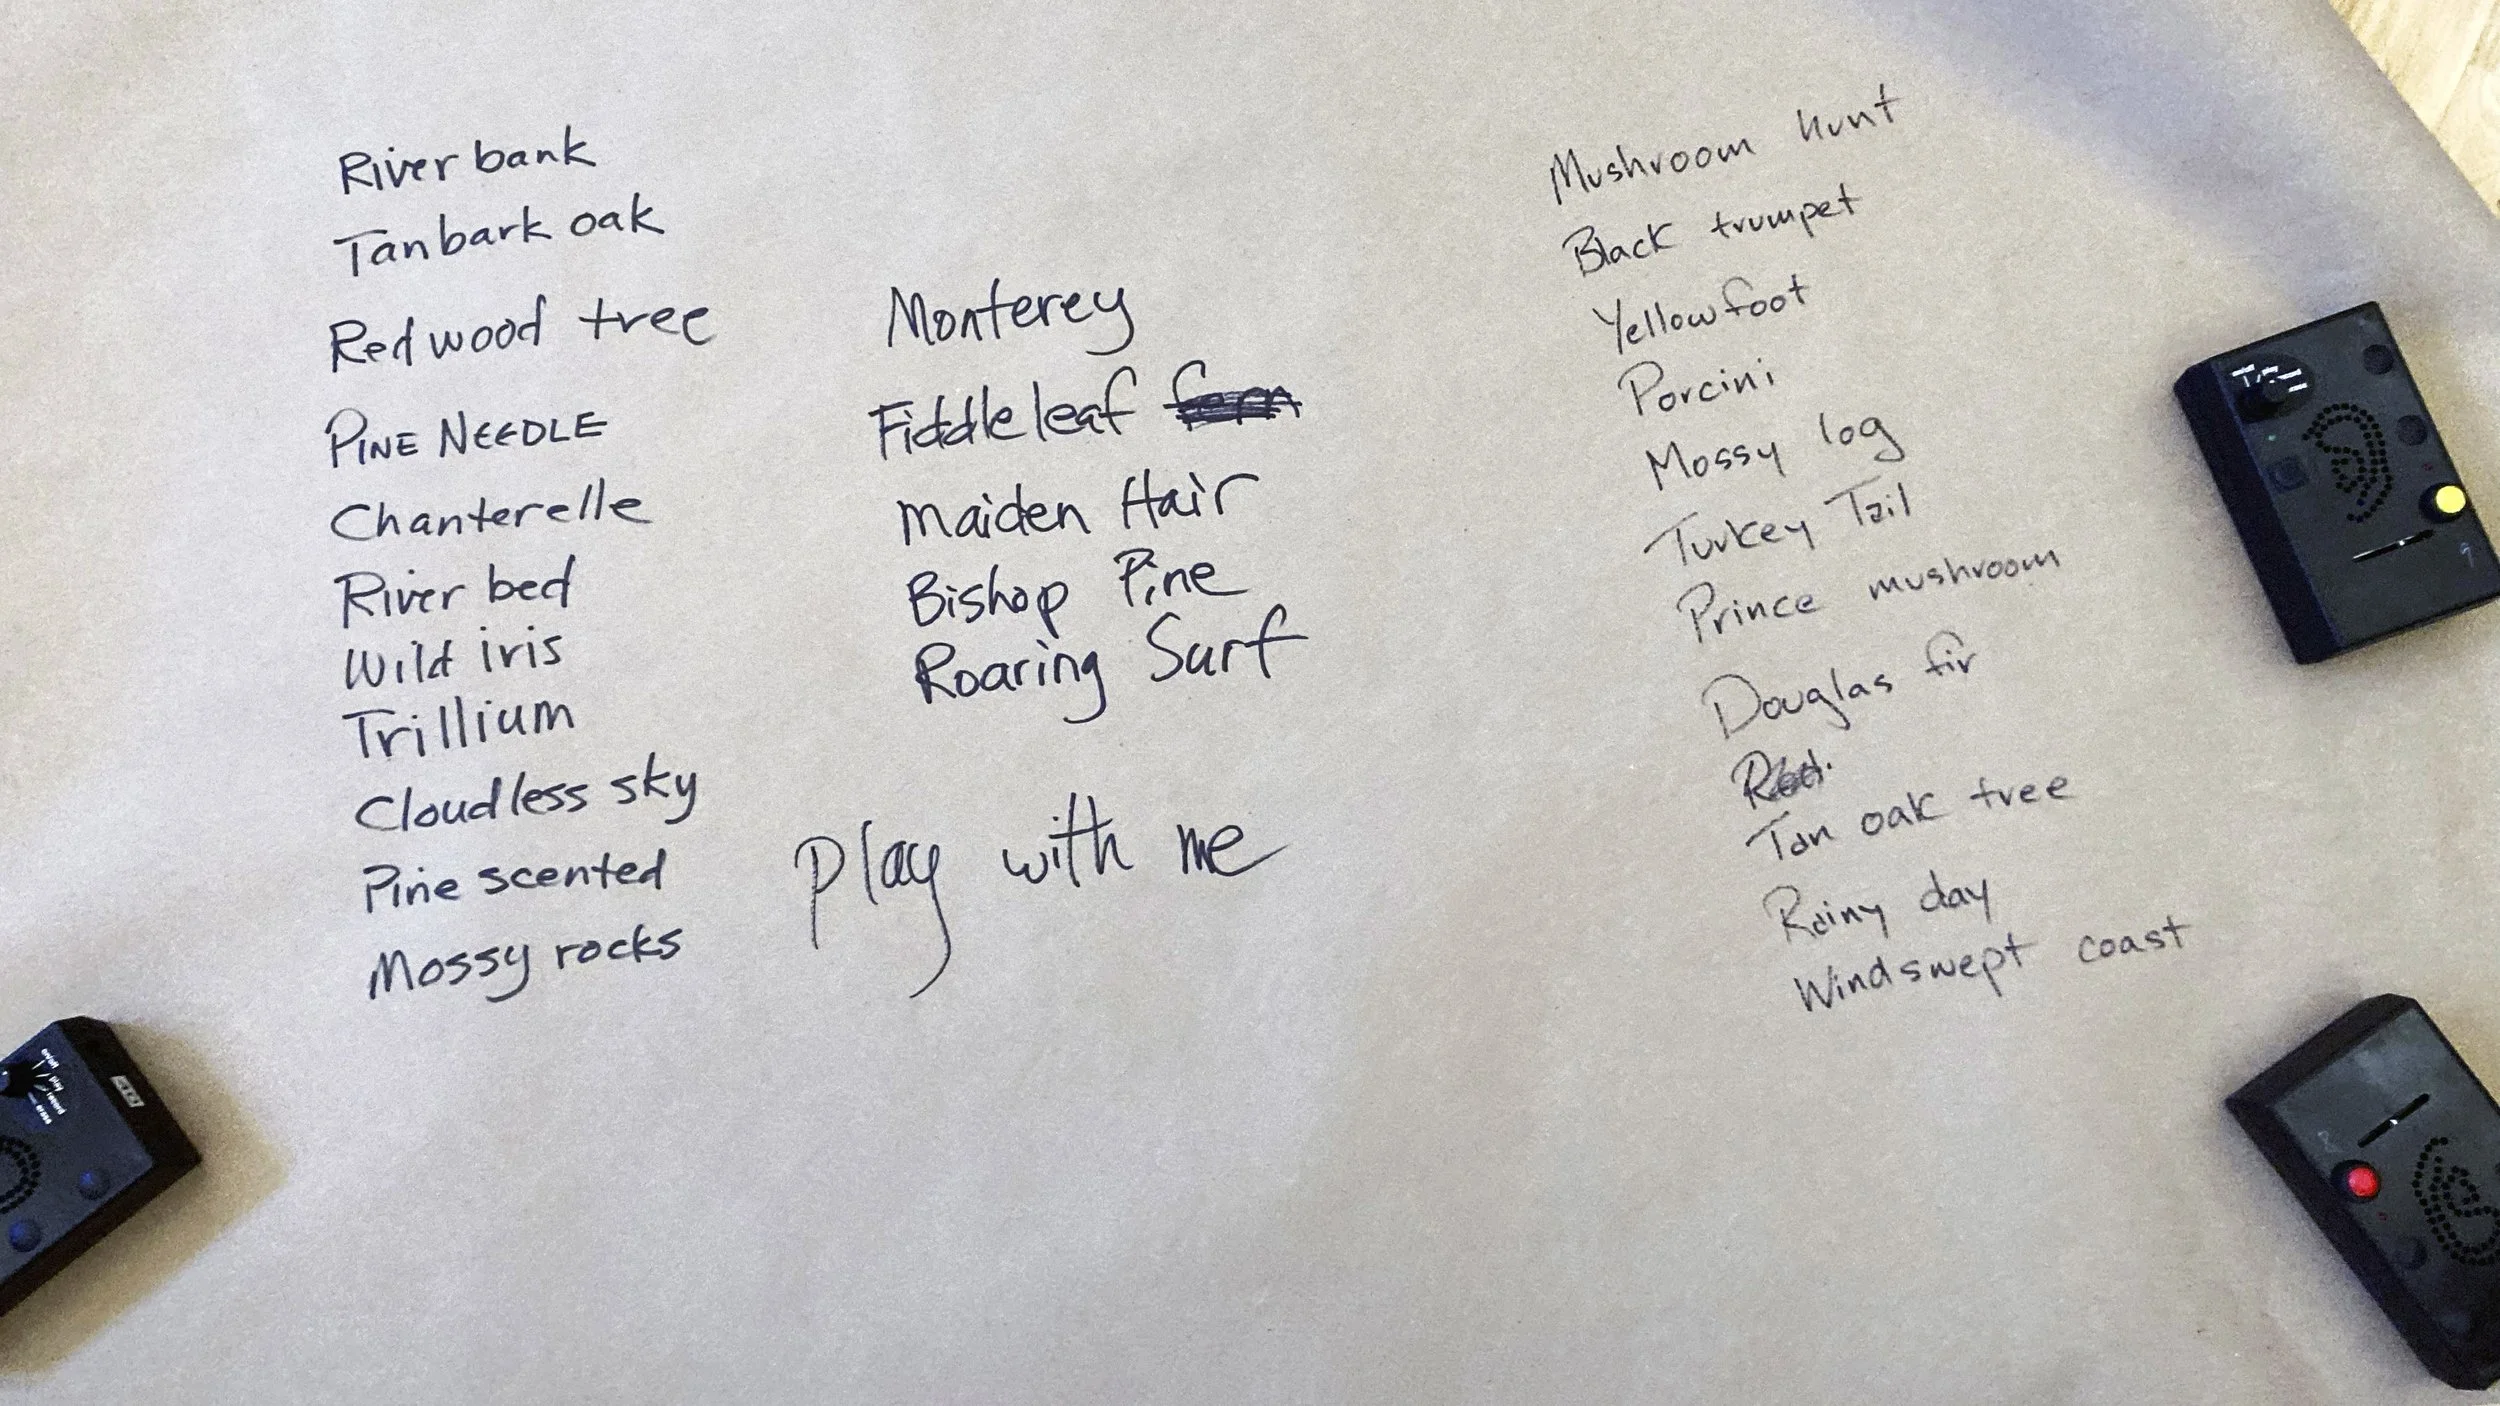 River bank
Tanbark oak
Redwood tree
PINE NEEDLE
Chanterelle
River bed
Wild iris
Trillium
Cloudless sky
Pine scented
Mossy rocks
Monterey
Fiddleleaf fern
Maiden Hair
Bishop Pine
Roaring Surf
Play with me
Mushroom hunt
Black trumpet
Yellowfoot
Porcini
Mossy log
Turkey Tail
Prince mushroom
Douglas fir
Tan oak tree
Rainy day
Windswept coast
play
record
erase